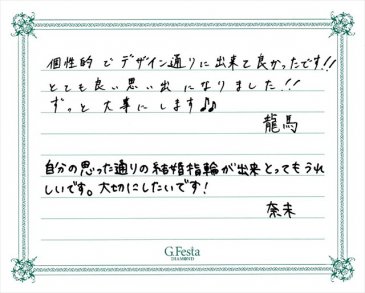 個性的でデザイン通りに出来て良かったです!!
とても良い思い出になりました!!
ずっと大事にします♪♪
龍馬
自分の思った通りの結婚指輪が出来とってもうれ
しいです。大切にしたいです!
奈未
G.Festa
DIAMOND